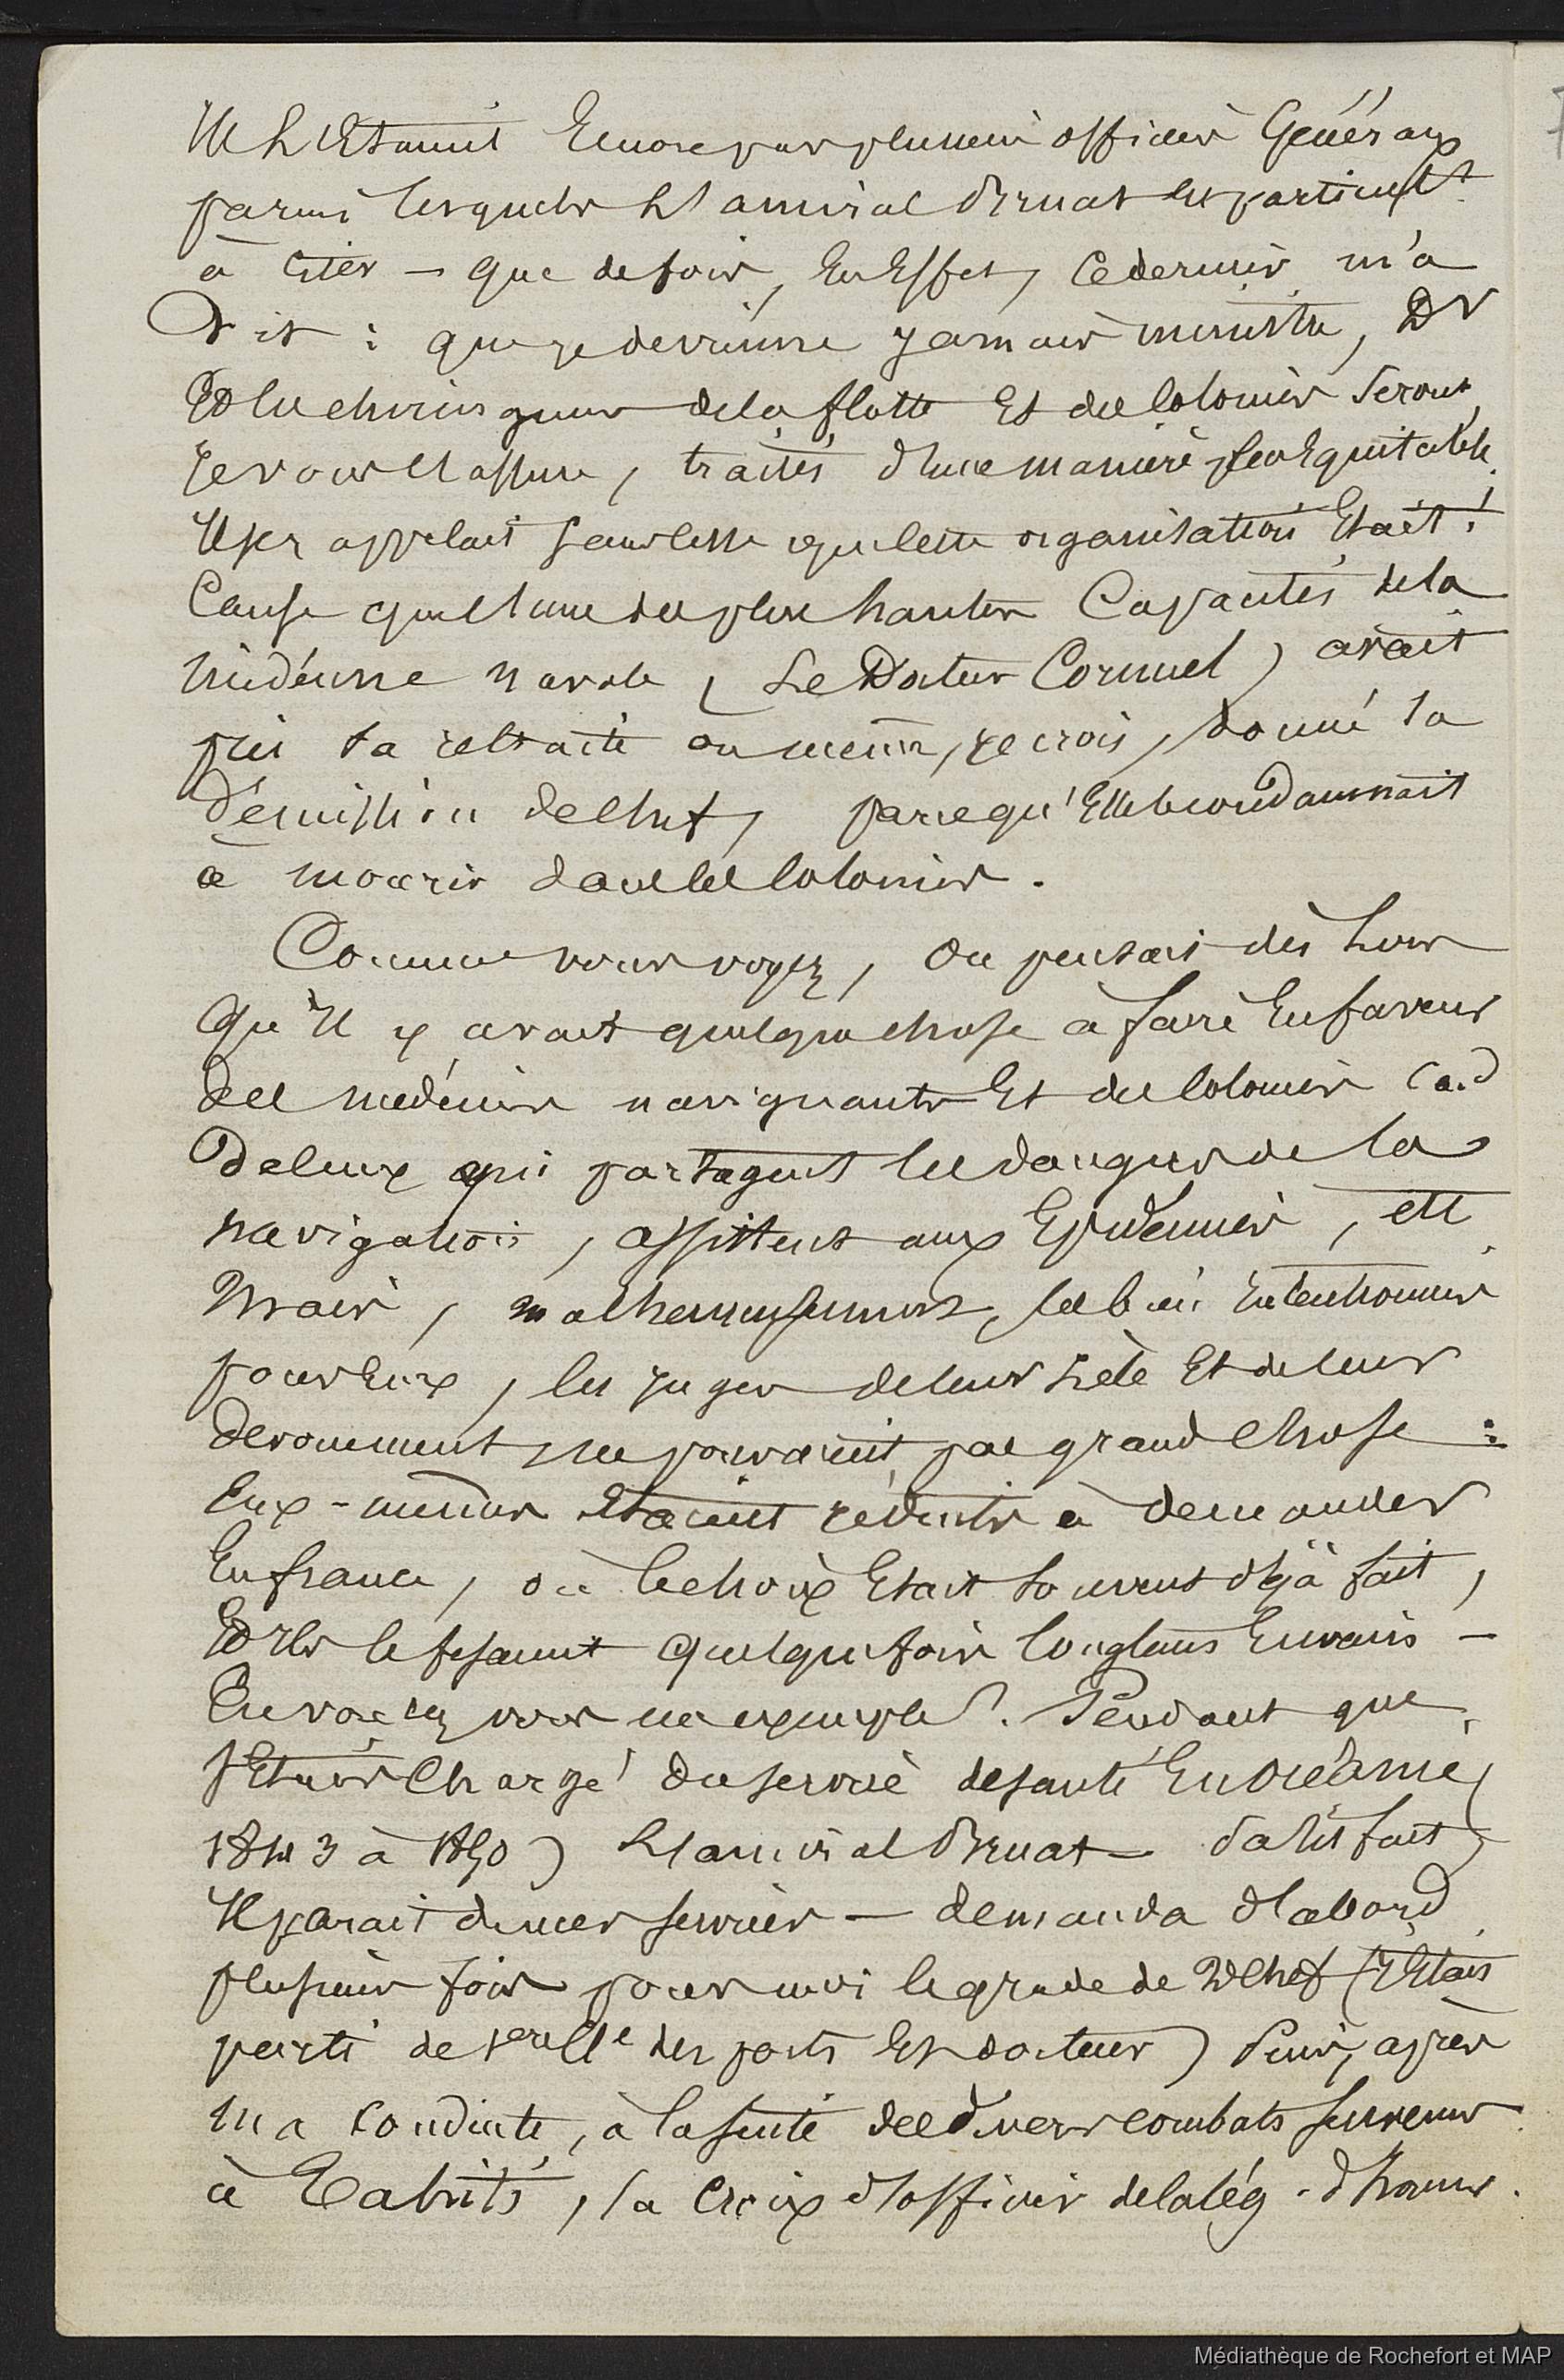 Il l'Etaient Encore par plusieurs officiers Généraux
parmi lesquels l'amiral Bruat est particult
à citer — que de fois, En Effet, ce dernier m'a
dit : que je devienne jamais ministre, Dr
Et les chirurgiens de la flotte Et des Colonies seront,
je vous l'assure, traités d'une manière plus Equitable.
Il se rappelait sans cesse que cette organisation Etait
Cause que l'une des plus hautes Capacités de la
médecine navale (Le Docteur Cornuel) avait
pris sa retraite ou même, je crois, donné sa
démission de chef, parcequ'Elle le condamnait
à mourir dans les Colonies.
Comme vous voyez, on pensait dès lors
qu'il y avait quelque chose à faire En faveur
des médecins naviguants Et des Colonies c.a.d
de ceux qui partagent les dangers de la
navigation, assistent aux Epidémies, ett
Mais, malheureusement, les bien intentionnés
pour Eux, les juges de leur zèle Et de leur
dévouement ne pouvaient pas grand chose :
Eux-mêmes Etaient réduits à demander
En france, où le choix Etait souvent déjà fait,
Et ils le fesaient quelquefois longtems En vain —
En voulez vous un exemple ? Pendant que
j'Etais Chargé du service de santé En Océanie (
1843 à 1850) L'amiral Bruat — satisfait,
Il parait de mes services — demanda d'abord
plusieurs fois pour moi le grade de 2d chef (j'Etais
parti de 1ere Clle des ports Et docteur) Puis, après
ma conduite, à la suite des divers combats survenus
à Tahiti, la Croix d'officier de la lég. d'honneur.
Médiathèque de Rochefort et MAP